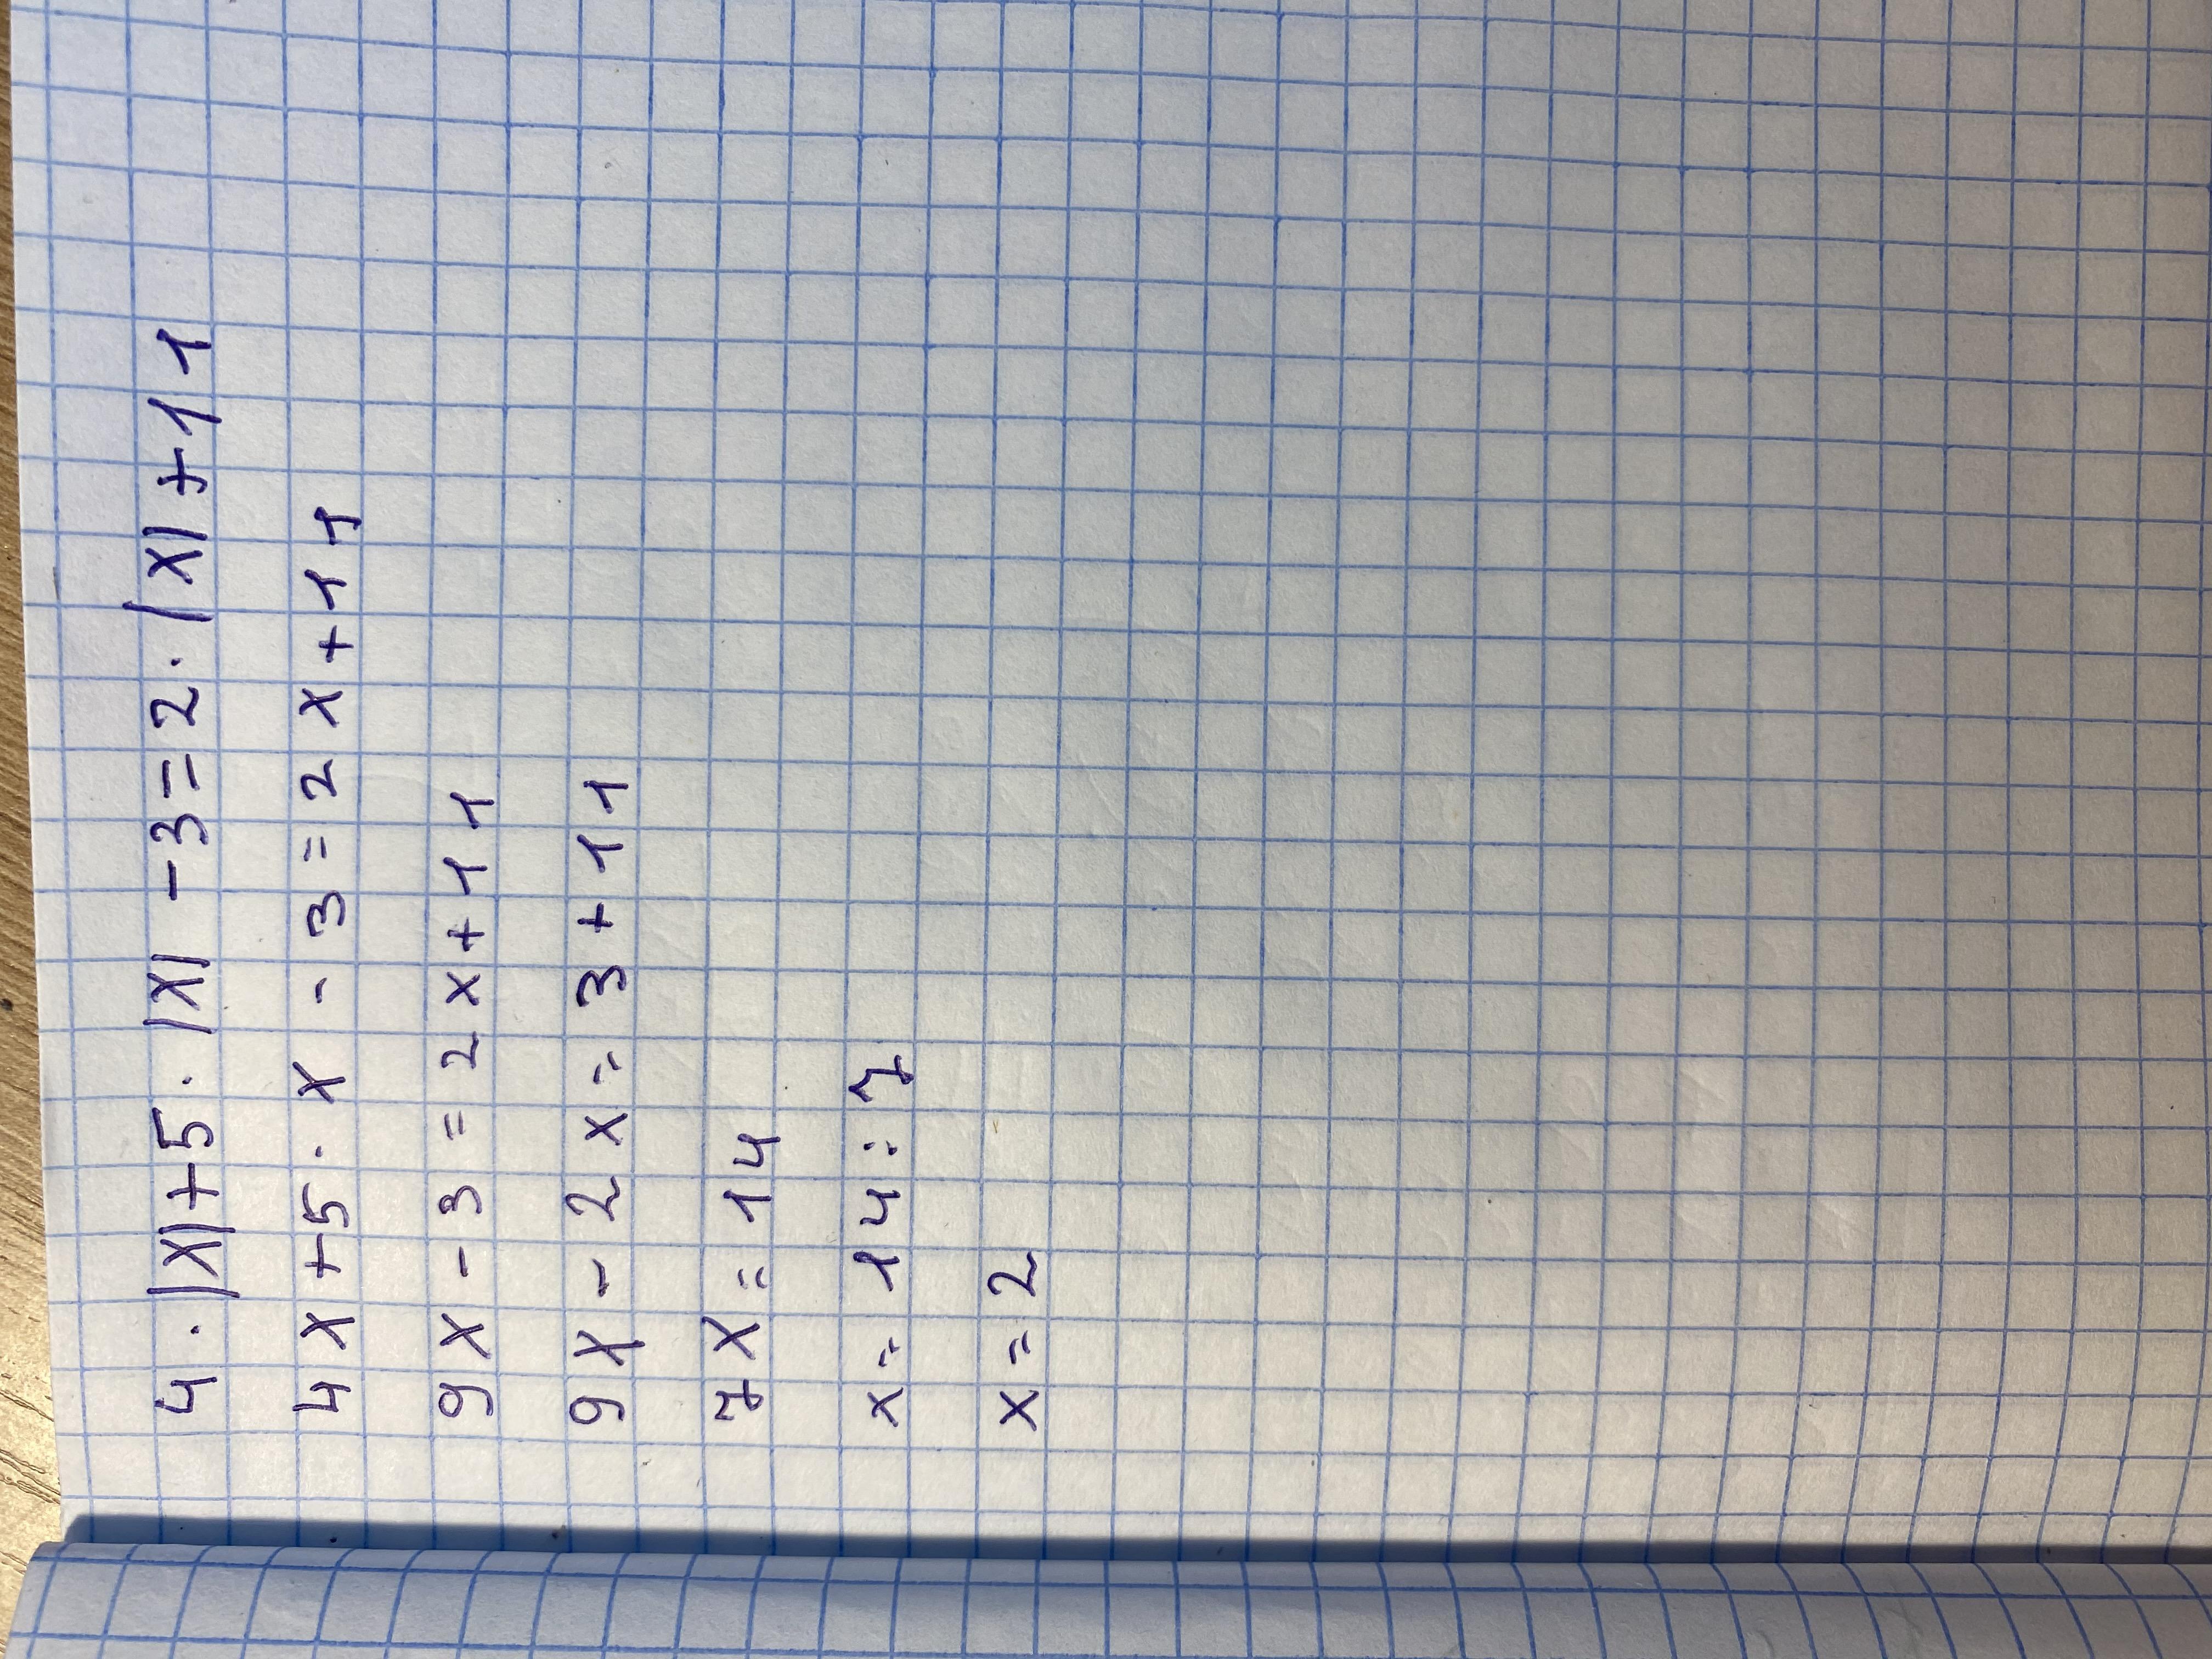 4 · |x| + 5 · |x| - 3 = 2 · |x| + 11
4x + 5 · x - 3 = 2x + 11
9x - 3 = 2x + 11
9x - 2x = 3 + 11
7x = 14
x = 14 : 7
x = 2